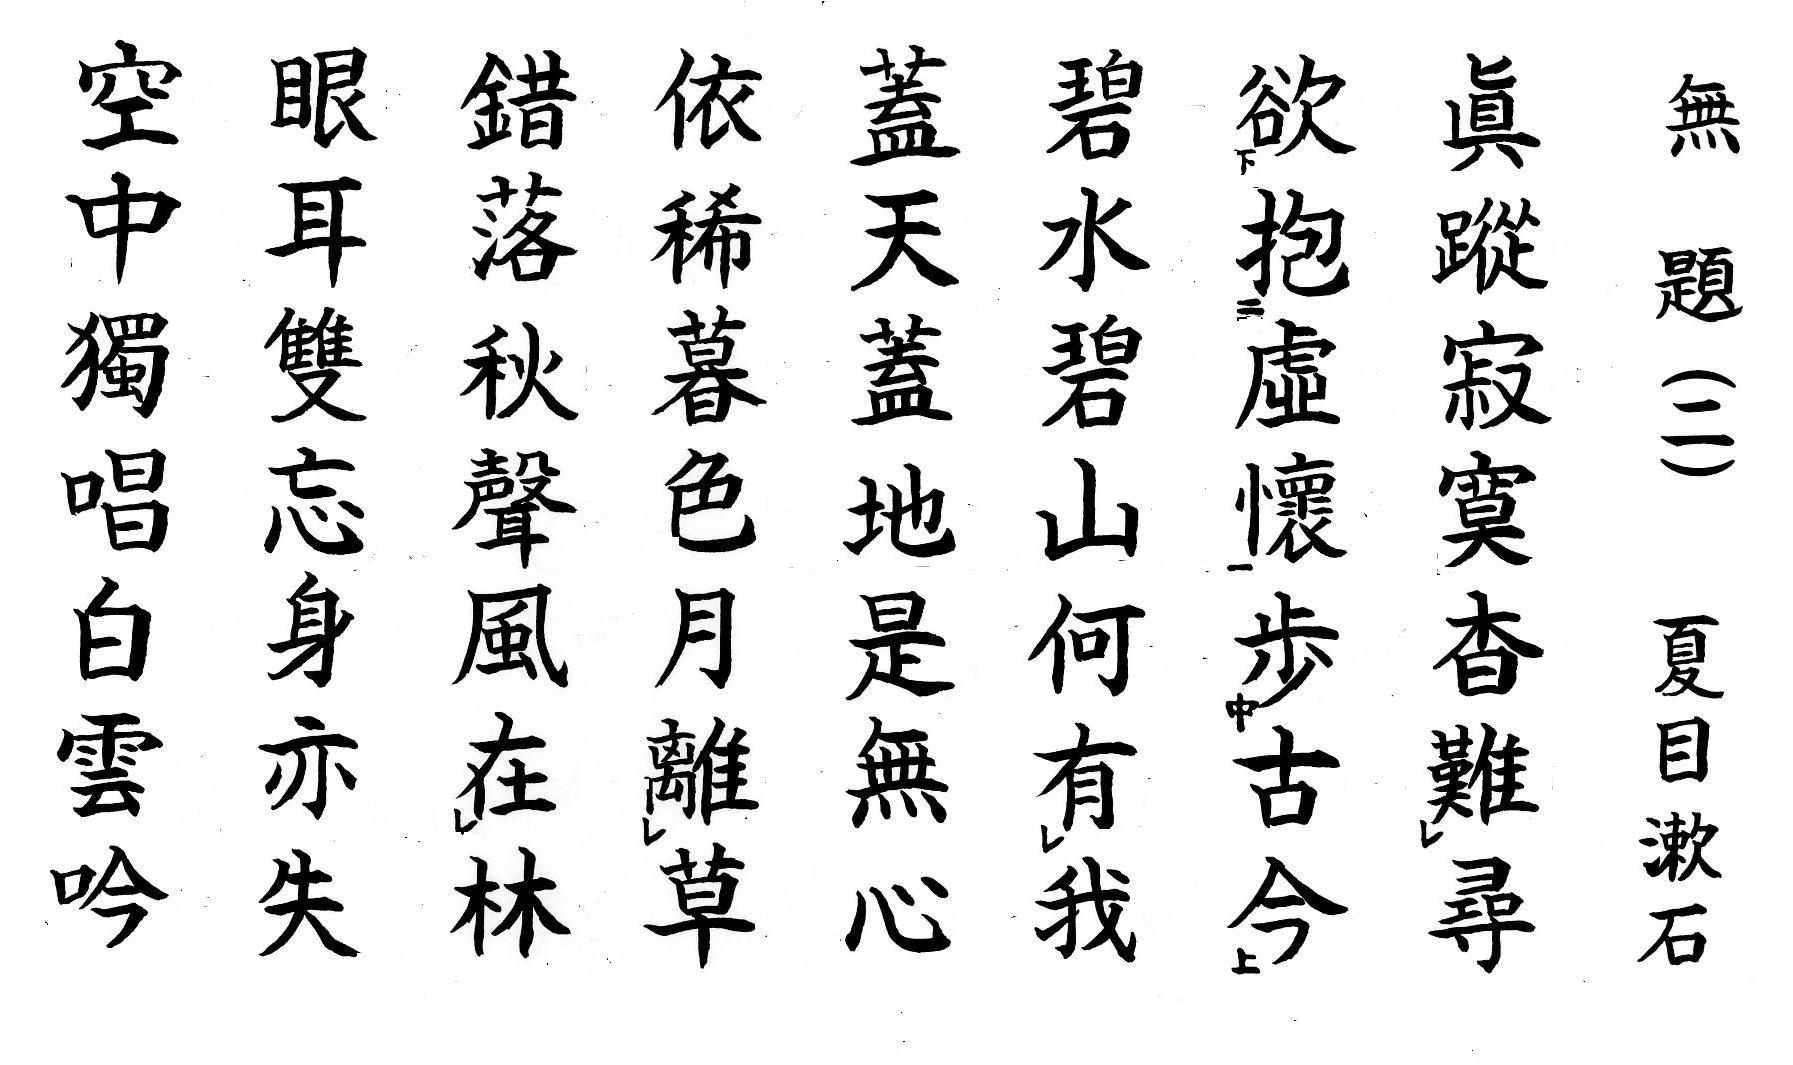 無題(二) 夏目漱石
眞蹤寂寞杳難レ尋
欲下抱二虛懷一歩中古今上
碧水碧山何有レ我
蓋天蓋地是無心
依稀暮色月離レ草
錯落秋聲風在レ林
眼耳雙忘身亦失
空中獨唱白雲吟